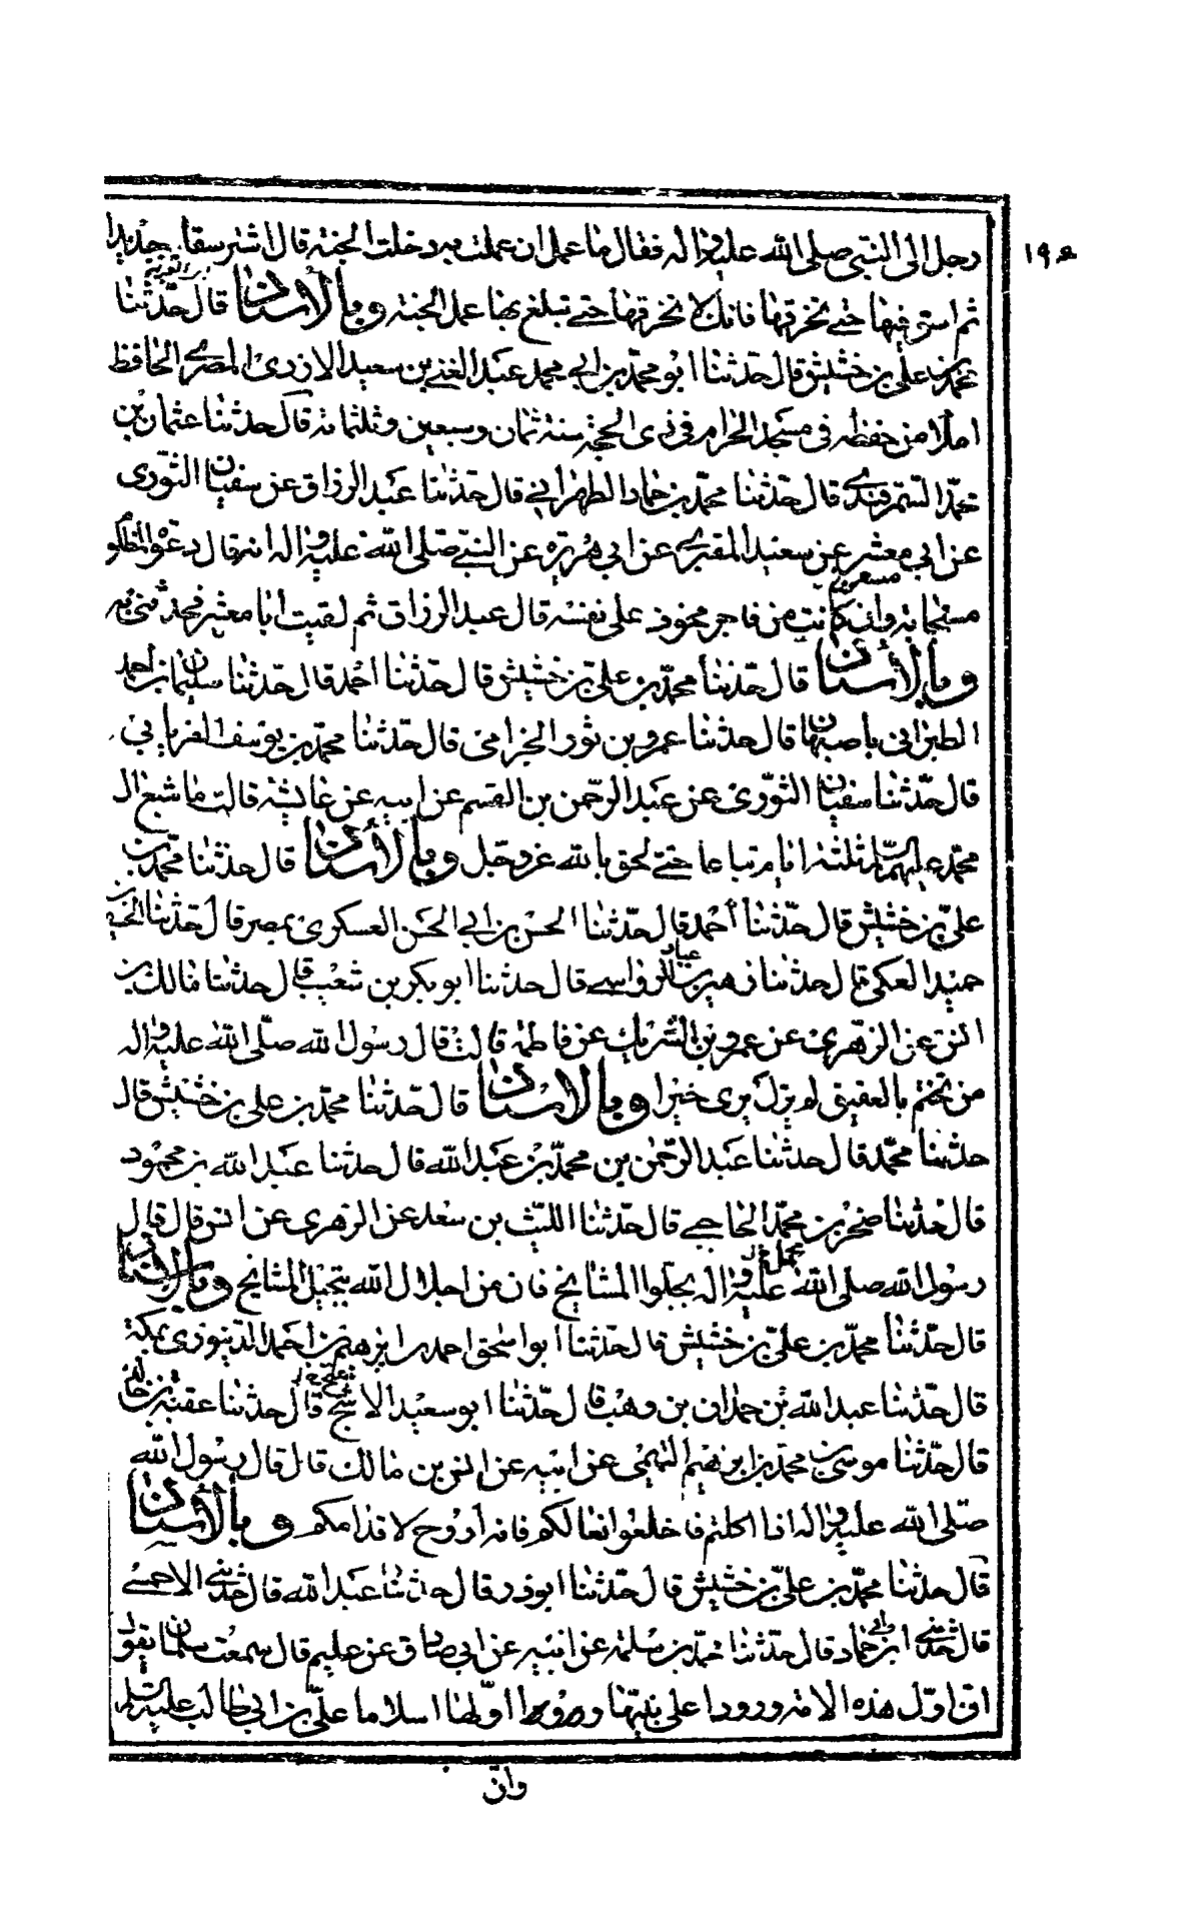 ١٩٤
رجل الى النبي صلى الله عليه واله فقال ما عمل ان عملت به دخلت الجنة قال اشتر سقاء جديدا
ثم استق فيها حتى تخرقها فانك لا تخرقها حتى تبلغ بها عمل الجنة وبالاسناد قال حدثنا
محمد بن علي بن خشيش قال حدثنا ابو محمد بن ابي محمد عبد الغني بن سعيد الازدي المصري الحافظ
املاء من حفظه في مسجد الحرام في ذي الحجة سنة ثمان وسبعين وثلثمائة قال حدثنا عثمان بن
محمد السمرقندي قال حدثنا محمد بن حماد الطهراني قال حدثنا عبد الرزاق عن سفيان الثوري
عن ابي معشر عن سعيد المقبري عن ابي هريرة عن النبي صلى الله عليه واله انه قال دعوة المظلوم
مستجابة وان كانت من فاجر مخوف على نفسه قال عبد الرزاق ثم لقيت ابا معشر فحدثني به
وبالاسناد قال حدثنا محمد بن علي بن خشيش قال حدثنا احمد قال حدثنا سليمان بن احمد
الطبراني باصبهان قال حدثنا عمرو بن ثور الجزامي قال حدثنا محمد بن يوسف الفريابي
قال حدثنا سفيان الثوري عن عبد الرحمن بن القسم عن ابيه عن عايشة قالت ما شبع ال
محمد عليهم السلم ثلثة ايام تباعا حتى لحق بالله عز وجل وبالاسناد قال حدثنا محمد بن
علي بن خشيش قال حدثنا احمد قال حدثنا الحسن بن ابي الحسن العسكري بمصر قال حدثنا
حميد العكي قال حدثنا زهير بن عباد الرواسي قال حدثنا ابو بكر بن شعيب قال حدثنا مالك بن
انس عن الزهري عن عمرو بن الشريك عن فاطمة قالت قال رسول الله صلى الله عليه واله
من تختم بالعقيق لم يزل يرى خيرا وبالاسناد قال حدثنا محمد بن علي بن خشيش قال
حدثنا محمد قال حدثنا عبد الرحمن بن محمد بن عبد الله قال حدثنا عبد الله بن محمود
قال حدثنا صخر بن محمد الحاجبي قال حدثنا الليث بن سعد عن الزهري عن انس قال قال
رسول الله صلى الله عليه واله بجلوا المشايخ فان من اجلال الله تبجيل المشايخ وبالاسناد
قال حدثنا محمد بن علي بن خشيش قال حدثنا ابو اسحق احمد بن ابرهيم بن احمد الدينوري بمكة
قال حدثنا عبد الله بن حمدان بن وهب قال حدثنا ابو سعيد الاشج قال حدثنا عقبة بن خالد
قال حدثنا موسى بن محمد بن ابرهيم التيمي عن ابيه عن انس بن مالك قال قال رسول الله
صلى الله عليه واله اذا اكلتم فاخلعوا نعالكم فانه اروح لاقدامكم وبالاسناد
قال حدثنا محمد بن علي بن خشيش قال حدثنا ابو ذر قال حدثنا عبد الله قال حدثني الاحمسي
قال حدثني ابن حماد قال حدثنا محمد بن سلمة عن ابيه عن ابي صادق عن عليم قال سمعت سلمان يقول
ان اول هذه الامة ورودا على نبيها اولها اسلاما علي بن ابي طالب عليه السلم
وان